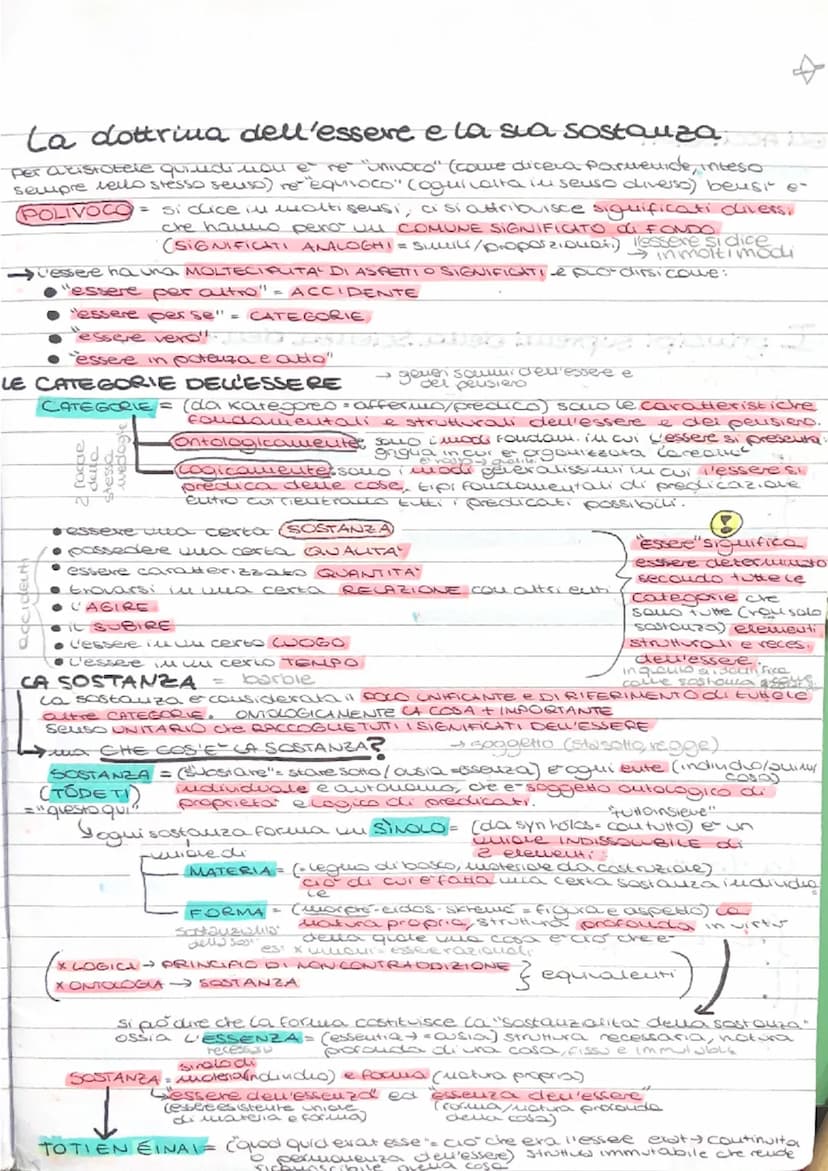 La dottrina dell'essere e la sua sostanza
per aristotele quindi non e' ne' "univoco" (come diceva Parmenide, inteso
sempre nello stesso senso) ne' "equivoco" (ogni volta in senso diverso) bensi' e'
POLIVOCO = si dice in molti sensi, ci si attribuisce significati diversi,
che hanno pero' un COMUNE SIGNIFICATO di FONDO
(SIGNIFICATI ANALOGHI = simili/proporzionati) l'essere si dice
→ in molti modi
→ L'essere ha una MOLTECIPLITA' DI ASPETTI O SIGNIFICATI e può dirsi come:
• "essere per altro" = ACCIDENTE
• "essere per se" = CATEGORIE
• "essere vero"
• "essere in potenza e atto"
LE CATEGORIE DELL'ESSERE → generi sommi dell'essere e
del pensiero
CATEGORIE = (da kategoreo = affermo/predico) sono le caratteristiche
fondamentali e strutturali dell'essere e del pensiero.
2 facce della stessa medaglia
ontologicamente: sono i modi fondam. in cui l'essere si presenta
griglia in cui e' organizzata la realta'
logicamente: sono i modi generalissimi in cui l'essere si
predica delle cose, tipi fondamentali di predicazione
entro cui rientrano tutti i predicati possibili.
• essere una certa SOSTANZA
• possedere una certa QUALITA'
• essere caratterizzato QUANTITA'
• trovarsi in una certa RELAZIONE con altri enti
• L'AGIRE
• il SUBIRE
• L'essere in un certo LUOGO
• L'essere in un certo TEMPO
accidenti
!
"Essere" significa
essere determinato
secondo tutte le
categorie che
sono tutte (non solo
sostanza) elementi
strutturali e neces.
dell'essere.
LA SOSTANZA = barbie
La sostanza e' considerata il POLO UNIFICANTE E DI RIFERIMENTO di tutte le
altre CATEGORIE. ONTOLOGICAMENTE LA COSA + IMPORTANTE
senso UNITARIO che RACCOGLIE TUTTI I SIGNIFICATI DELL'ESSERE
→ ma CHE COS'E' LA SOSTANZA? → soggetto (sta sotto, regge)
SOSTANZA = ("substare" = stare sotto/ousia = essenza) e' ogni ente (individuo/
cosa)
(TÓDE TI) individuale e autonomo, che e' soggetto ontologico di
= "questo qui" proprieta' e logico di predicati.
"tutto insieme"
ogni sostanza forma un SÌNOLO = (da syn holos = con tutto) e' un
unione INDISSOLUBILE di
2 elementi:
unione di
MATERIA = (= legno di bosco, materiale da costruzione)
cio' di cui e' fatta una certa sostanza individua
le
FORMA = (morpré-eidos-skhema = figura e aspetto) la
natura propria, struttura profonda in virtu'
della quale una cosa e' cio' che e'
sostanzialita'
della sost.
es: x uomini = essere razionali
x LOGICA → PRINCIPIO DI NON CONTRADDIZIONE
x ONTOLOGIA → SOSTANZA
} equivalenti
si può dire che la forma costituisce la "sostanzialita' della sostanza"
ossia L'ESSENZA = (essentia → ousia) struttura necessaria, natura
profonda di una cosa, fissa e immutabile
sinolo di
SOSTANZA = materia (individuo) e forma (natura propria)
"essere dell'essenza" ed "essenza dell'essere"
(essere esistente unione
di materia e forma)
(forma/natura profonda
della cosa)
TO TI EN EINAI = ("quod quid erat esse" = cio' che era l'essere → continuita'
o permanenza dell'essere) struttura immutabile che rende
riconoscibile quella cosa